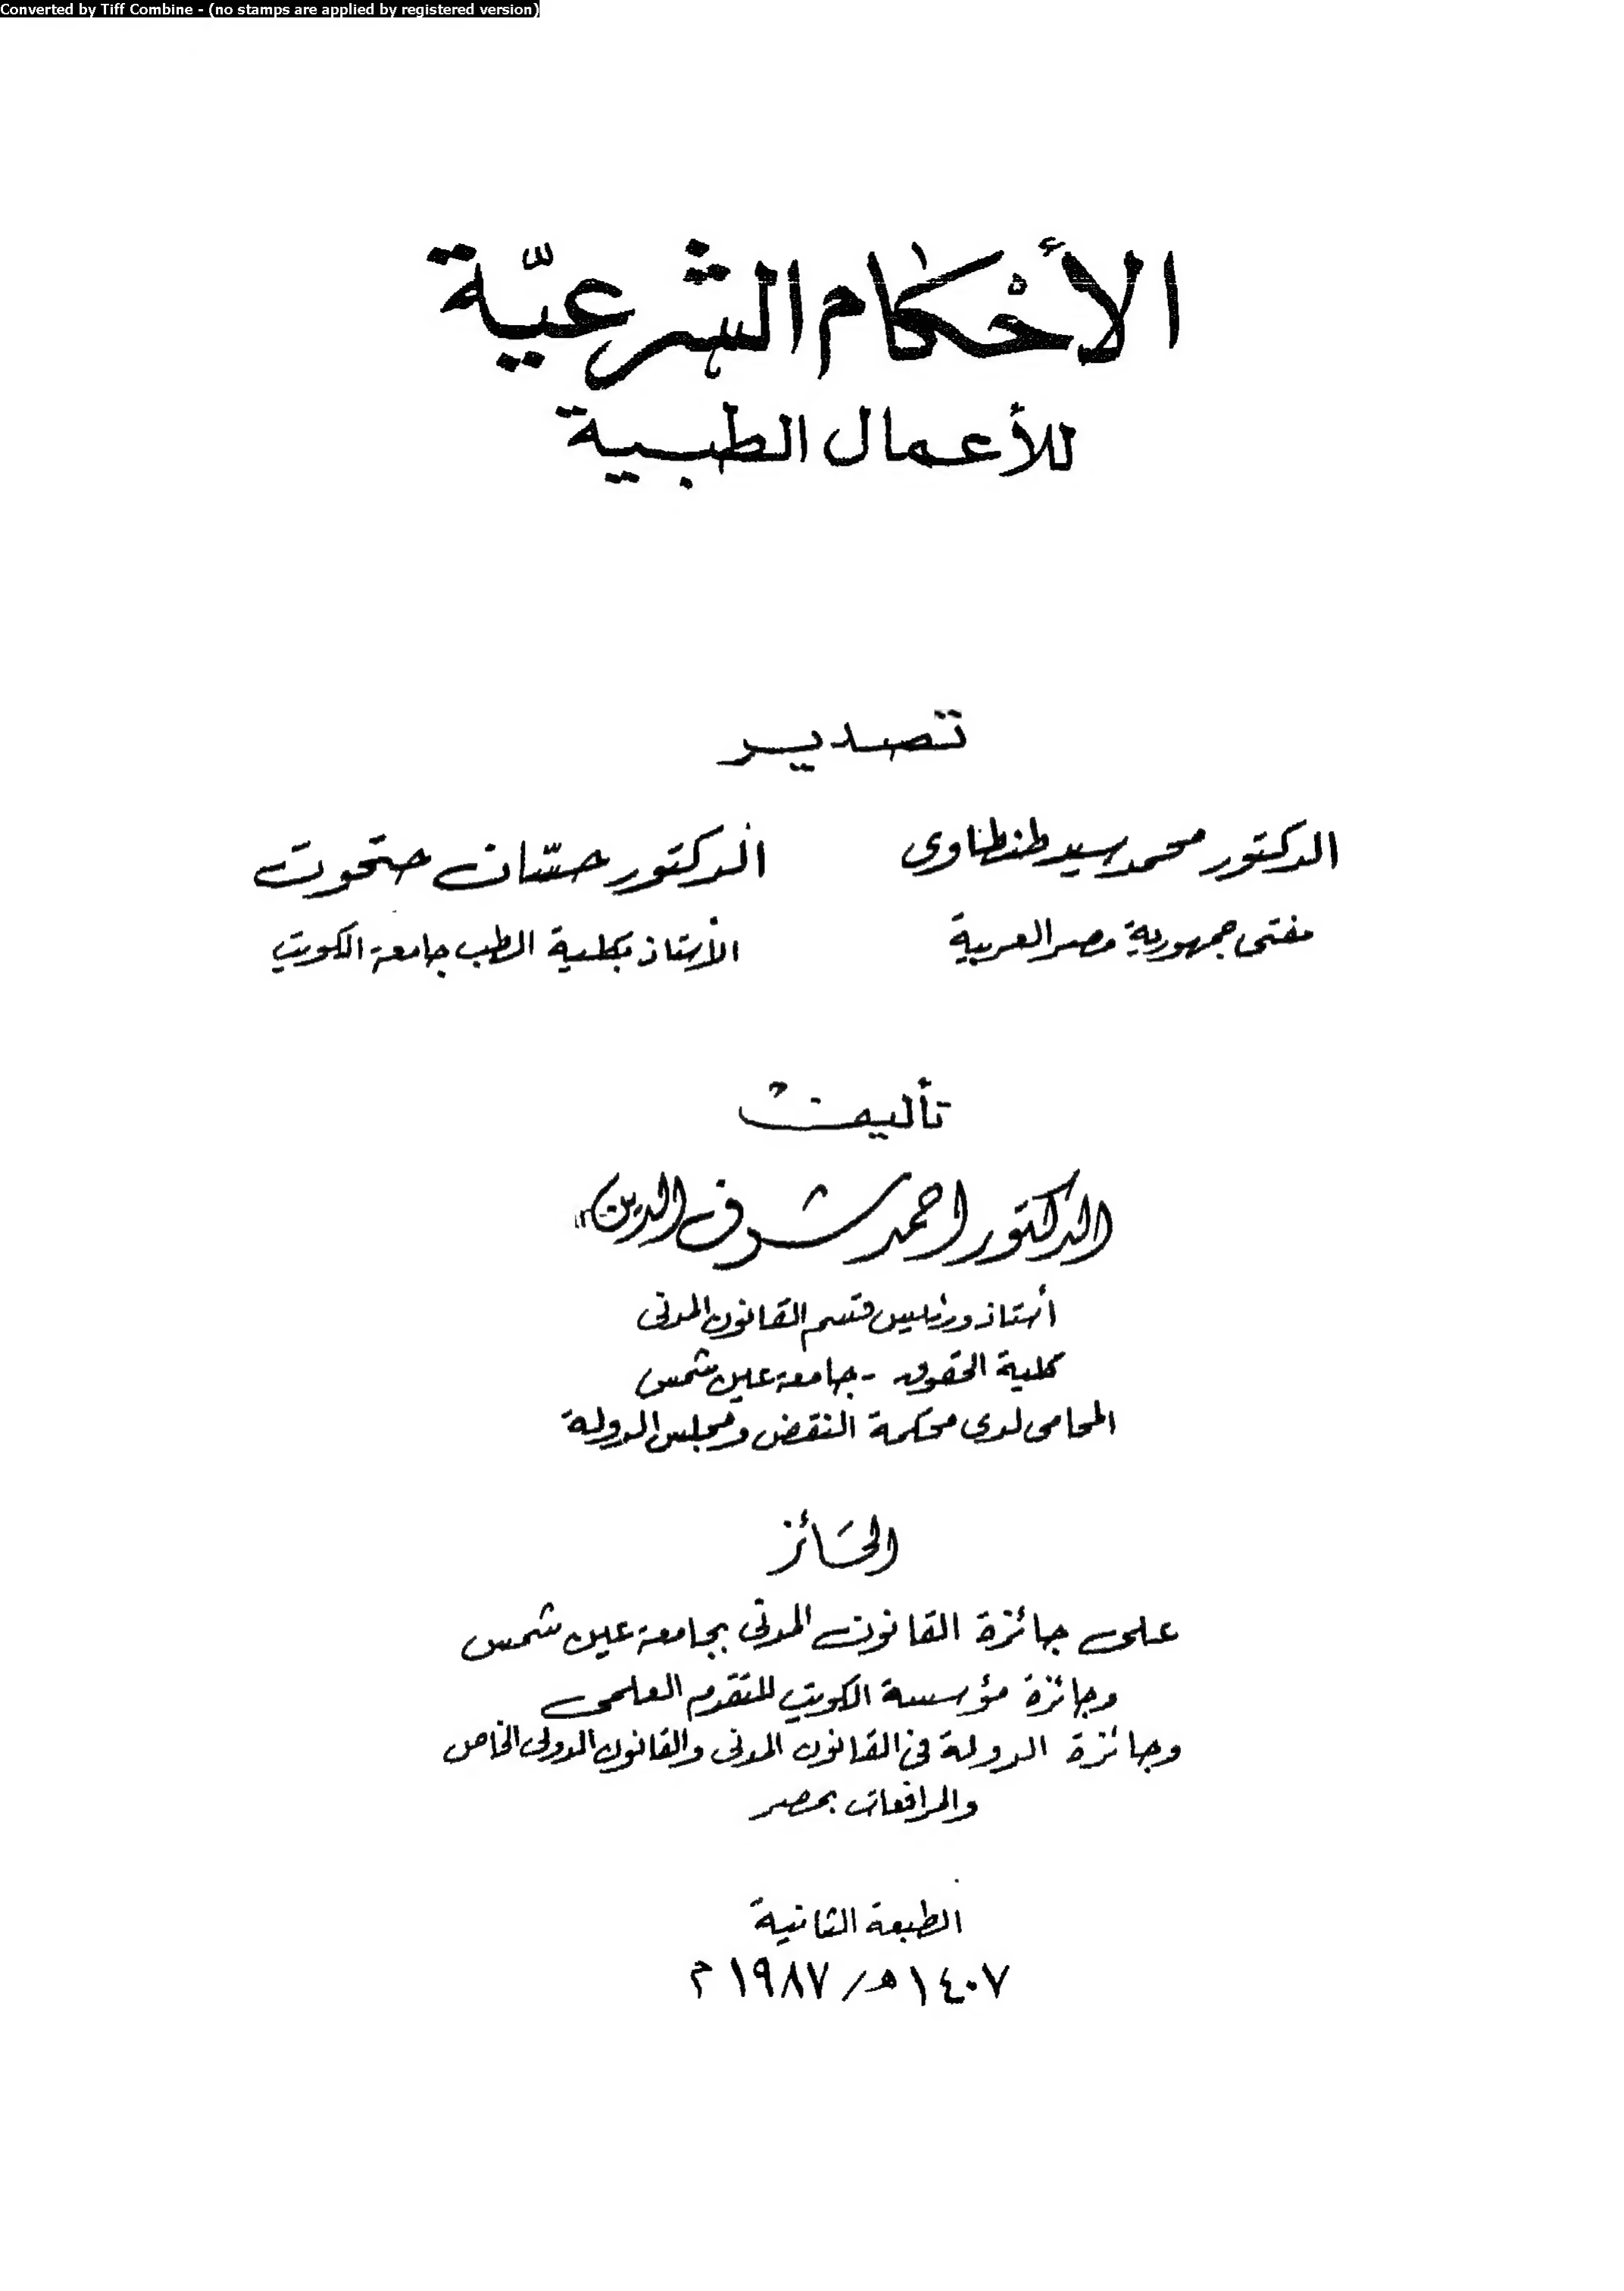 Converted by Tiff Combine - (no stamps are applied by registered version)
الأحْكام الشرعيّة
للأعمال الطبية
تصدير
الدكتور محمد سيد طنطاوى
الدكتور حسّان حتحوت
مفتى جمهورية مصر العربية
الأستاذ بكلية الطب جامعة الكويت
تأليف
الدكتور احمد شرف الدين
أستاذ ورئيس قسم القانون المدنى
كلية الحقوق - جامعة عين شمس
المحامى لدى محكمة النقض ومجلس الدولة
الحائز
على جائزة القانون المدنى بجامعة عين شمس
وجائزة مؤسسة الكويت للتقدم العلمى
وجائزة الدولة فى القانون المدنى والقانون الدولى الخاص
والمرافعات بمصر
الطبعة الثانية
١٤٠٧ هـ / ١٩٨٧ م